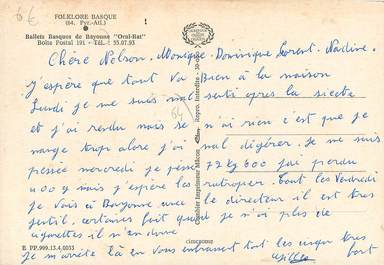 6€
FOLKLORE BASQUE
(64. Pyr.-Atl.)
Ballets Basques de Bayonne "Oraï-Bat"
Boîte Postal 191 - Tél. : 55.07.93
Chère Nelson. Monique. Dominique Laurent. Nadine.
J'espère que tout va Bien à la maison
Lundi je me suis mal senti après la siecte
et j'ai rendu mais se n'ai rien c'est que je
mange trop alore j'ai mal dégérer. Je me suis
pessée mercredi je pesse 72 kg 600 j'ai perdu
400 g mais j'espere les rutroper. Tout les Vendredi
je vais à Bayonne avec le directeur il est tres
gentil, certaines foit quand je n'ai plus de
cigarettes il m'en donne
Je m'arrete là en vous embrassant tout les cinq tres
fort
Combier Imprimeur Mâcon
Repro. Interdite
64
E PP.999.13.4.0033
CIMCHROME